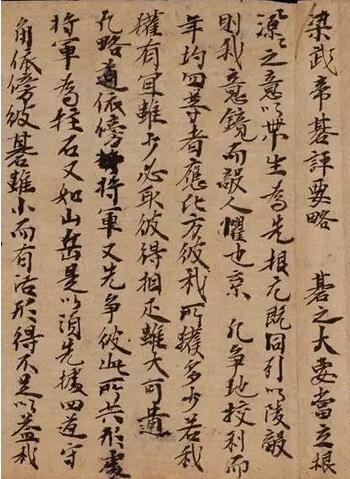 梁武帝碁評要略　碁之大要當立根
源之意以帶生為先根元既固引以陵敵
則我意鏡而敵人懼也京　凡爭地校利而
年均四等者應比方彼我所獲多少若我
獲有宜雖少必取彼得相足雖大可遺
凡略道依傍將軍又先爭彼此所共形處
將軍為柱石又如山岳是以須先據四道守
角依傍彼碁雖小而有活形得不足以益我